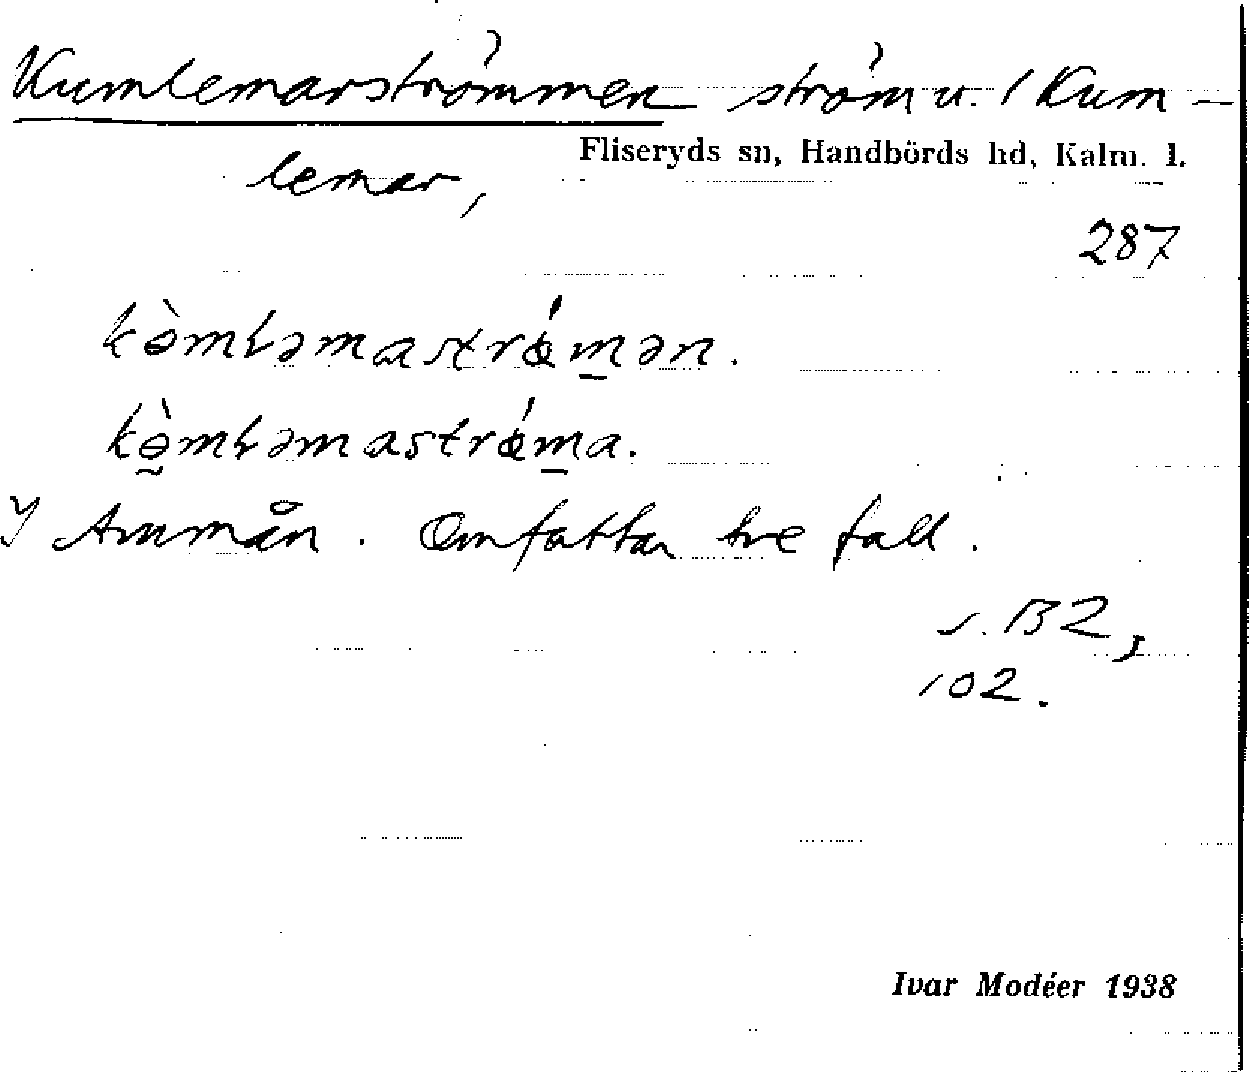 Kumlemarströmmen ström u. / Kum-
Fliseryds sn, Handbörds hd, Kalm. l.
lemar,
287
kòmləmastrǿmən.
kòmləmastrǿma.
I Ammån. Omfattar tre fall.
s. B2,
102.
Ivar Modéer 1938